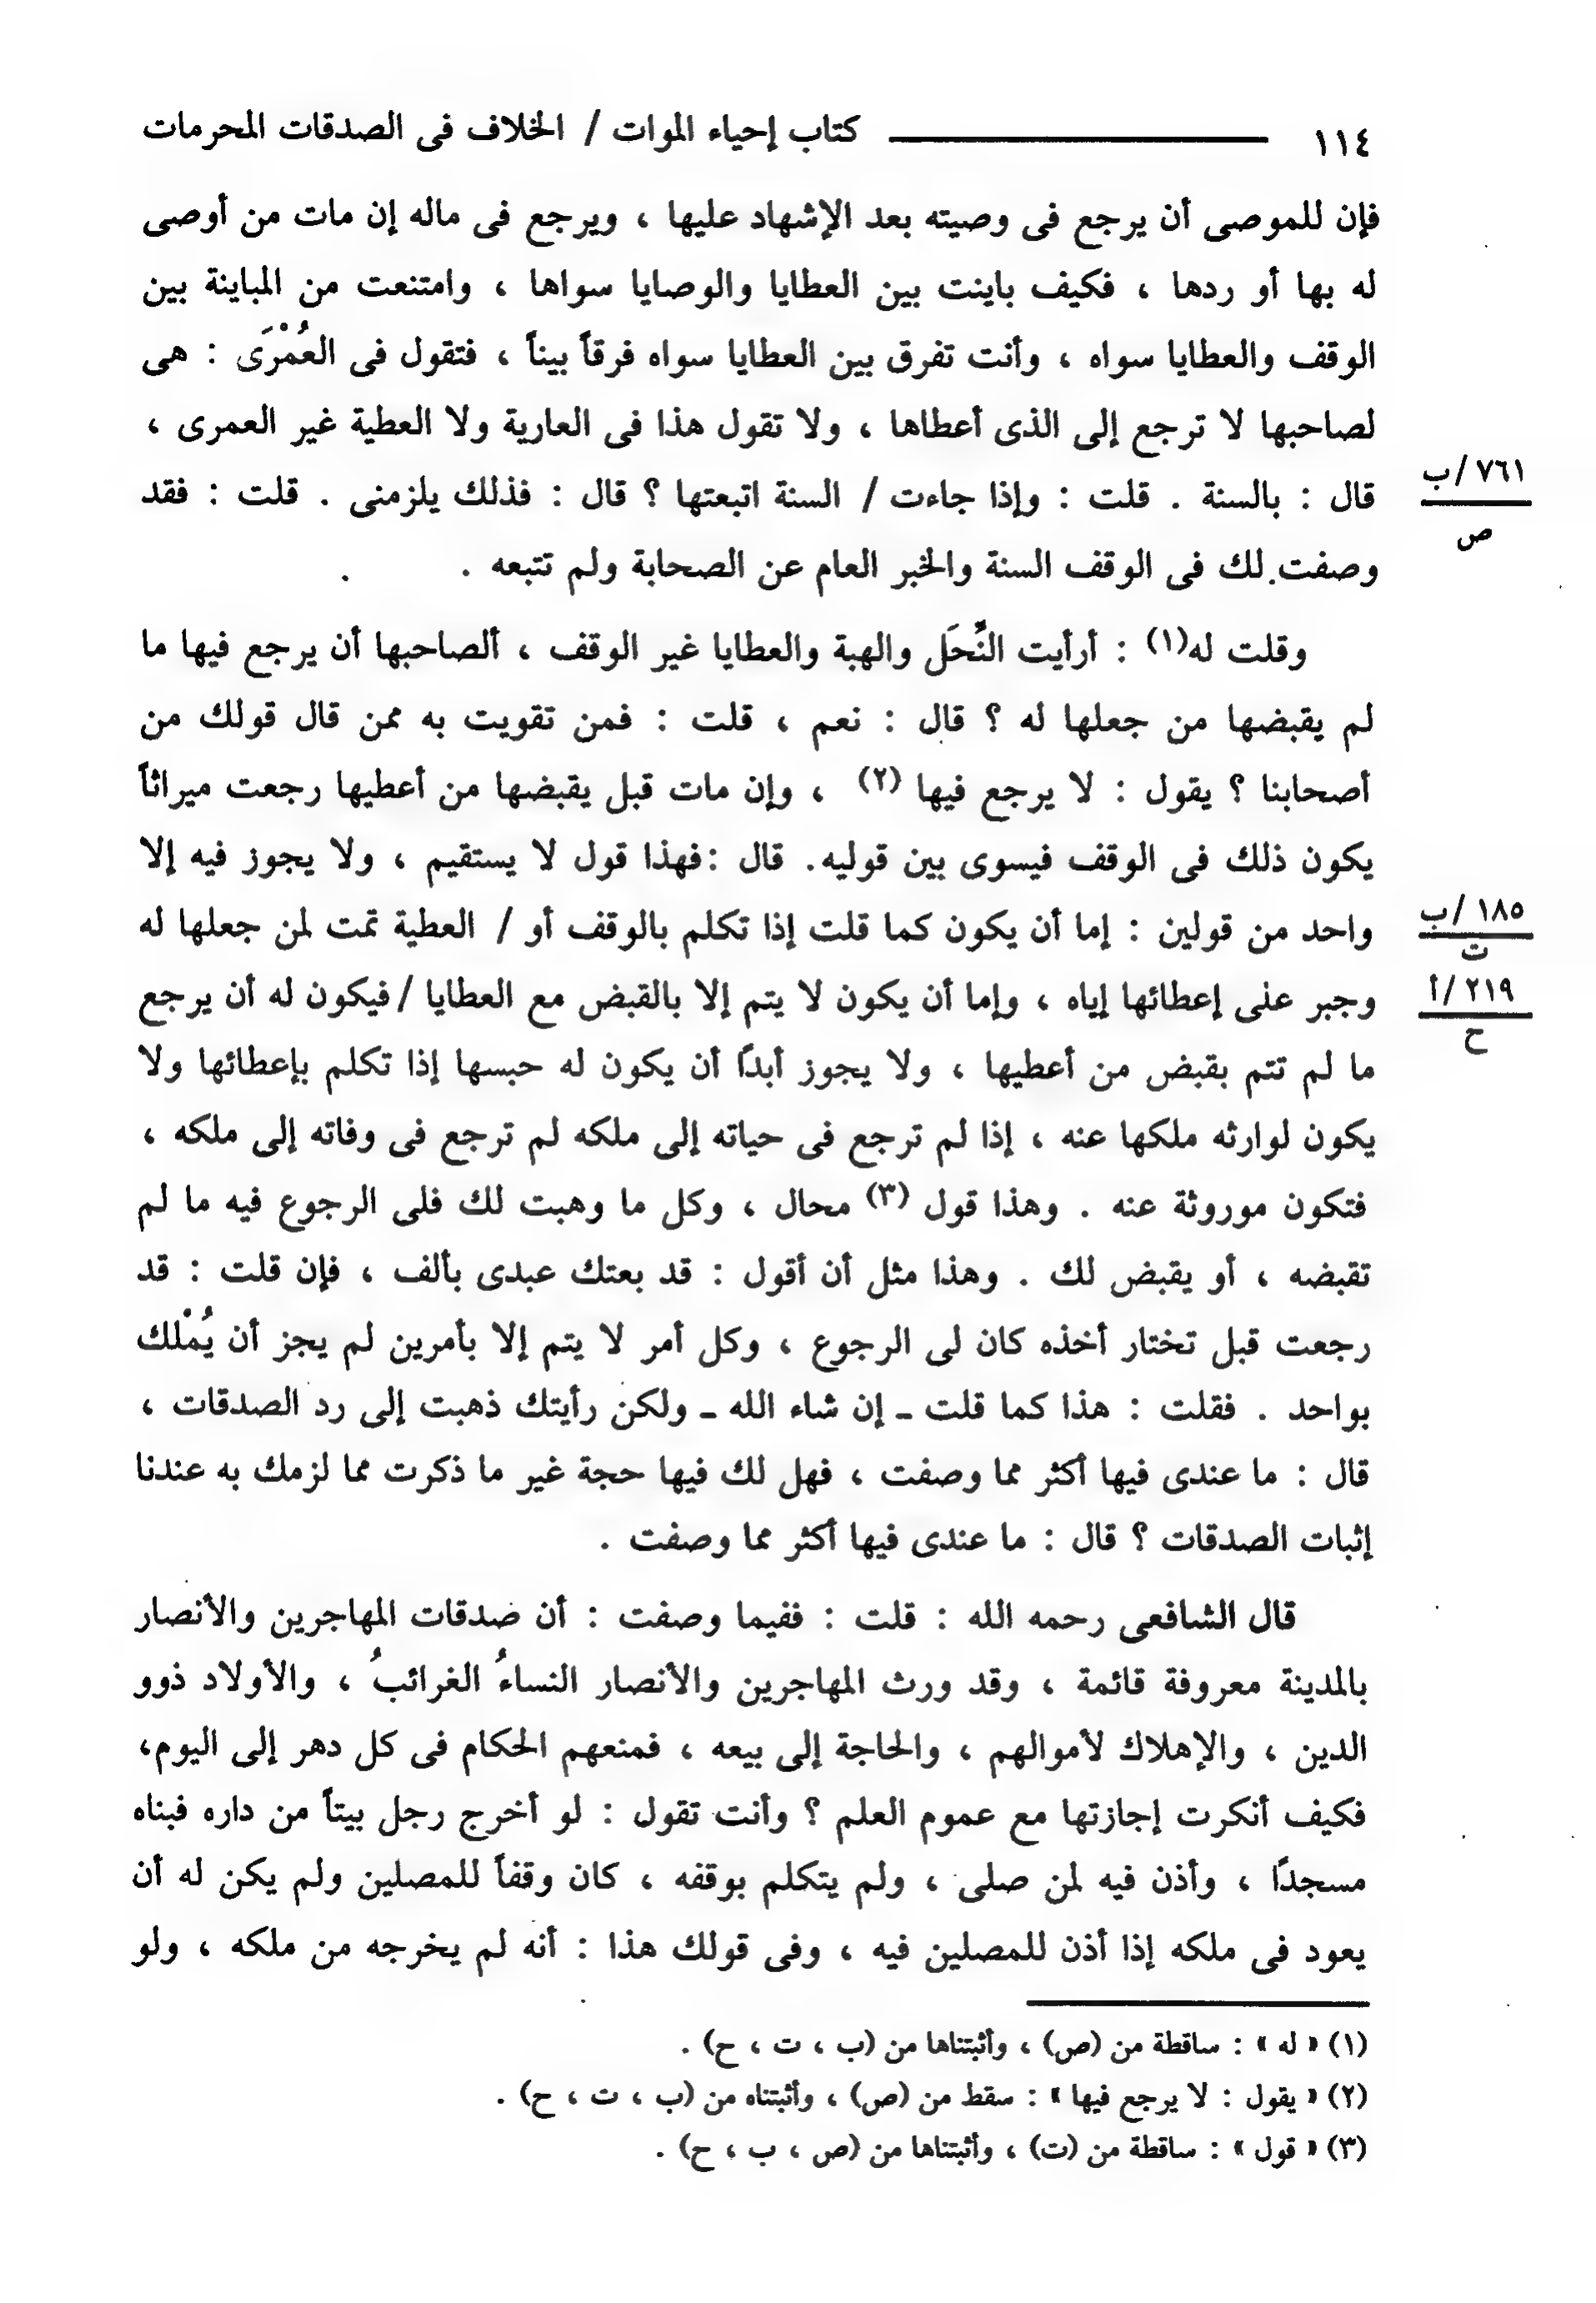 ١١٤ كتاب إحياء الموات / الخلاف فى الصدقات المحرمات
فإن للموصى أن يرجع فى وصيته بعد الإشهاد عليها ، ويرجع فى ماله إن مات من أوصى
له بها أو ردها ، فكيف باينت بين العطايا والوصايا سواها ، وامتنعت من المباينة بين
الوقف والعطايا سواه ، وأنت تفرق بين العطايا سواه فرقاً بيناً ، فتقول فى العُمْرَى : هى
لصاحبها لا ترجع إلى الذى أعطاها ، ولا تقول هذا فى العارية ولا العطية غير العمرى ،
قال : بالسنة . قلت : وإذا جاءت / السنة اتبعتها ؟ قال : فذلك يلزمنى . قلت : فقد
٧٦١ /ب
ص
وصفت لك فى الوقف السنة والخبر العام عن الصحابة ولم تتبعه .
وقلت له(١) : أرأيت النِّحَل والهبة والعطايا غير الوقف ، ألصاحبها أن يرجع فيها ما
لم يقبضها من جعلها له ؟ قال : نعم ، قلت : فمن تقويت به ممن قال قولك من
أصحابنا ؟ يقول : لا يرجع فيها (٢) ، وإن مات قبل يقبضها من أعطيها رجعت ميراثاً
يكون ذلك فى الوقف فيسوى بين قوليه. قال :فهذا قول لا يستقيم ، ولا يجوز فيه إلا
واحد من قولين : إما أن يكون كما قلت إذا تكلم بالوقف أو / العطية تمت لمن جعلها له
١٨٥ /ب
ت
وجبر على إعطائها إياه ، وإما أن يكون لا يتم إلا بالقبض مع العطايا /فيكون له أن يرجع
٢١٩ /أ
ح
ما لم تتم بقبض من أعطيها ، ولا يجوز أبداً أن يكون له حبسها إذا تكلم بإعطائها ولا
يكون لوارثه ملكها عنه ، إذا لم ترجع فى حياته إلى ملكه لم ترجع فى وفاته إلى ملكه ،
فتكون موروثة عنه . وهذا قول (٣) محال ، وكل ما وهبت لك فلى الرجوع فيه ما لم
تقبضه ، أو يقبض لك . وهذا مثل أن أقول : قد بعتك عبدى بألف ، فإن قلت : قد
رجعت قبل تختار أخذه كان لى الرجوع ، وكل أمر لا يتم إلا بأمرين لم يجز أن يُمْلك
بواحد . فقلت : هذا كما قلت ـ إن شاء الله ـ ولكن رأيتك ذهبت إلى رد الصدقات ،
قال : ما عندى فيها أكثر مما وصفت ، فهل لك فيها حجة غير ما ذكرت مما لزمك به عندنا
إثبات الصدقات ؟ قال : ما عندى فيها أكثر مما وصفت .
قال الشافعى رحمه الله : قلت : ففيما وصفت : أن صدقات المهاجرين والأنصار
بالمدينة معروفة قائمة ، وقد ورث المهاجرين والأنصار النساءُ الغرائبُ ، والأولاد ذوو
الدين ، والإهلاك لأموالهم ، والحاجة إلى بيعه ، فمنعهم الحكام فى كل دهر إلى اليوم،
فكيف أنكرت إجازتها مع عموم العلم ؟ وأنت تقول : لو أخرج رجل بيتاً من داره فبناه
مسجداً ، وأذن فيه لمن صلى ، ولم يتكلم بوقفه ، كان وقفاً للمصلين ولم يكن له أن
يعود فى ملكه إذا أذن للمصلين فيه ، وفى قولك هذا : أنه لم يخرجه من ملكه ، ولو
(١) « له » : ساقطة من (ص) ، وأثبتناها من (ب ، ت ، ح) .
(٢) « يقول : لا يرجع فيها » : سقط من (ص) ، وأثبتناه من (ب ، ت ، ح) .
(٣) « قول » : ساقطة من (ت) ، وأثبتناها من (ص ، ب ، ح) .